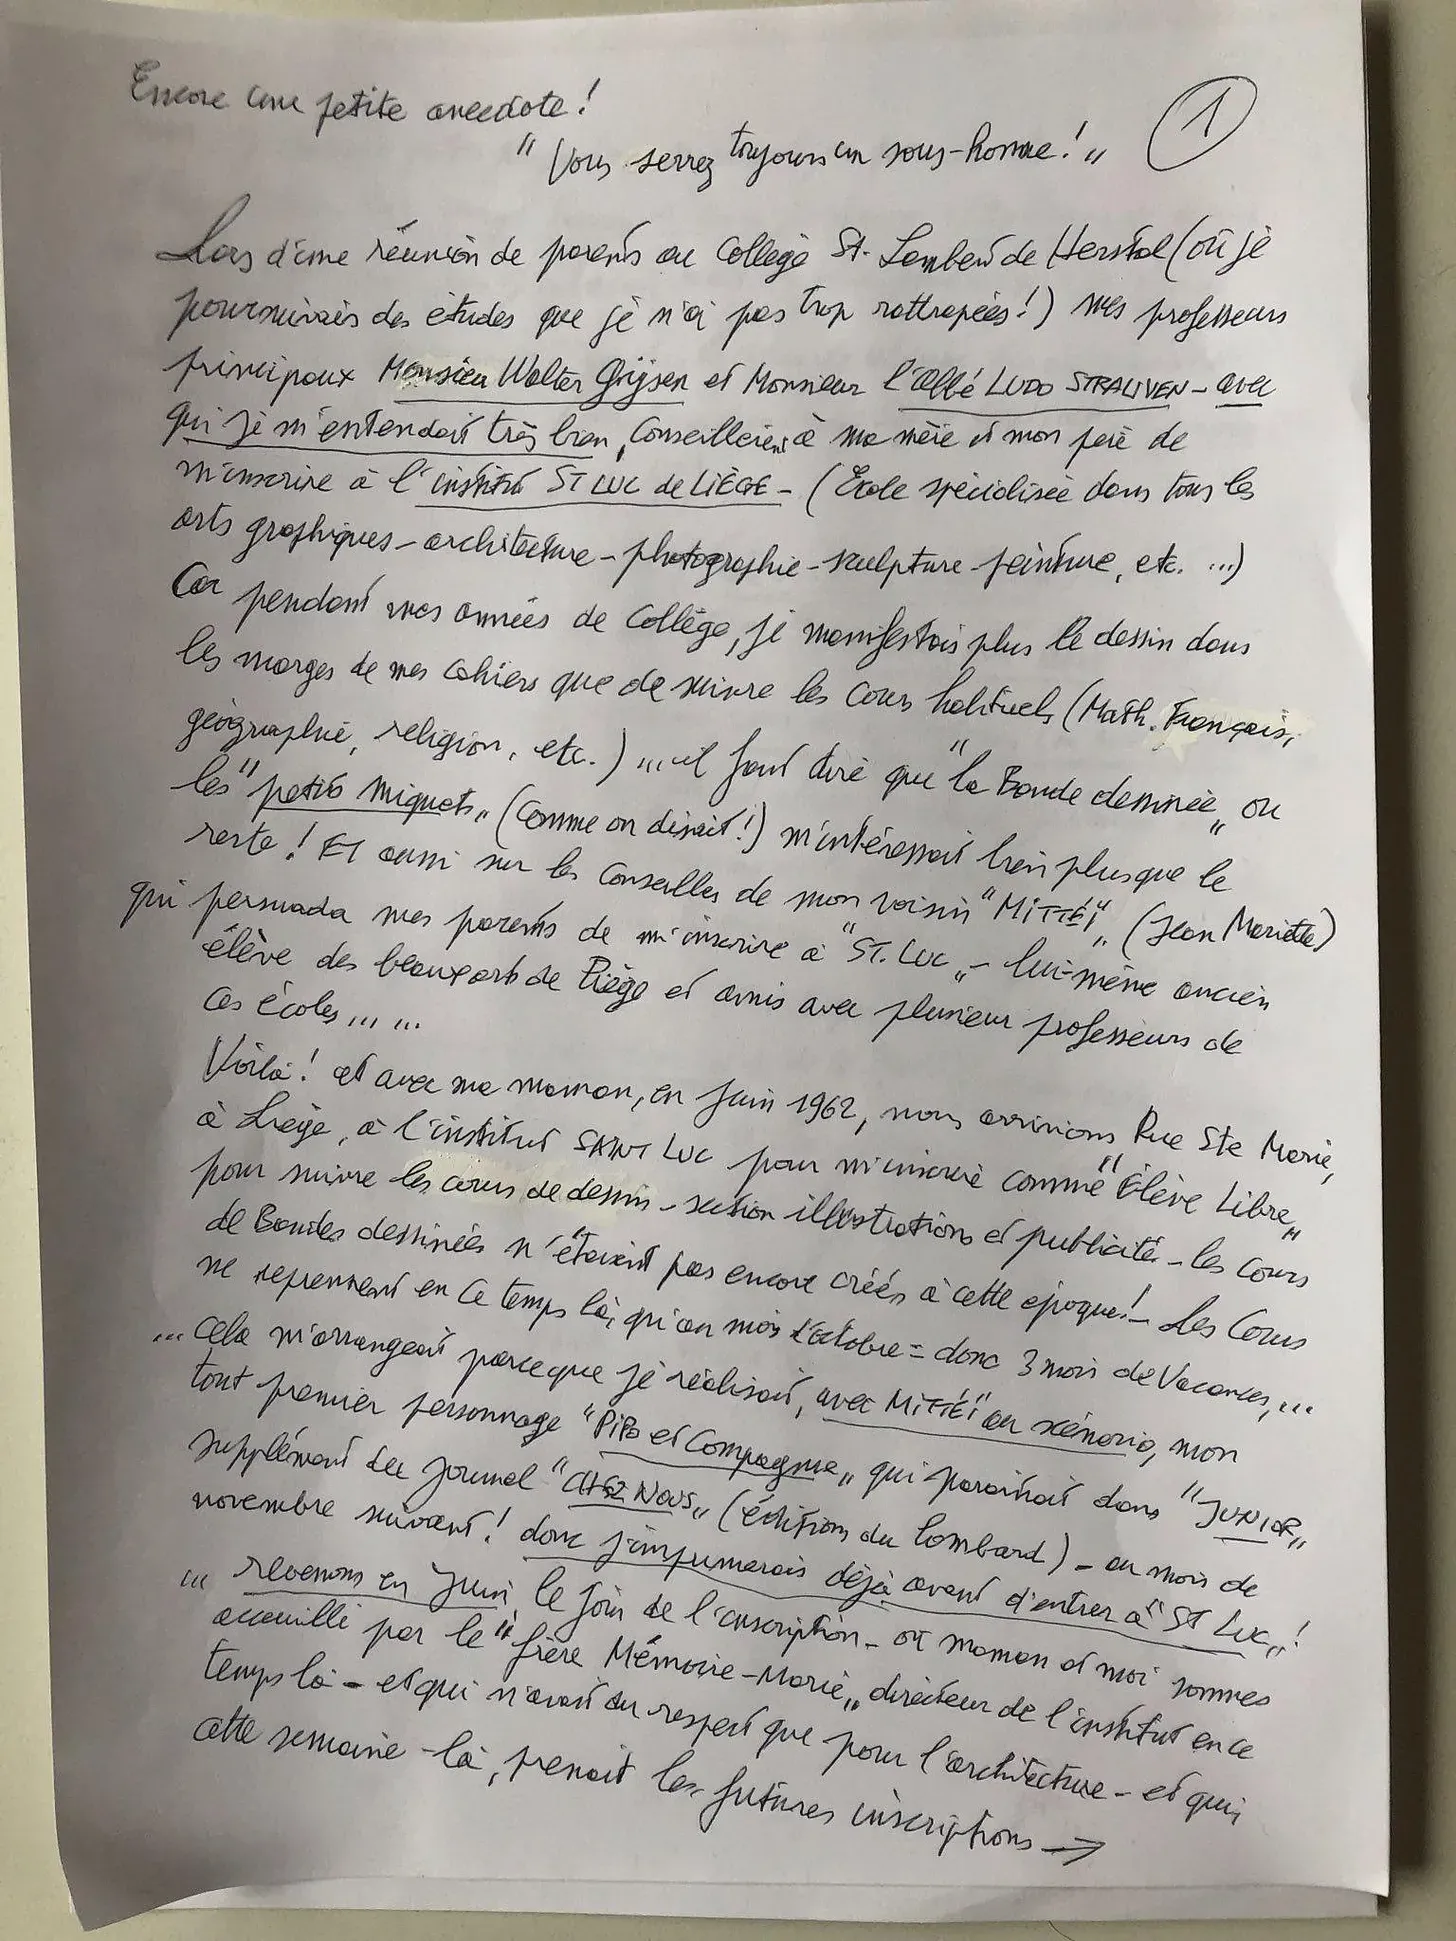 Encore une petite anecdote!
1
"Vous serrez toujours un sous-homme!"
Lors d'une réunion de parents au Collège St. Lambert de Herstal (où je
poursuivais des études que je n'ai pas trop rattrapées!) mes professeurs
principaux Monsieur Walter Grijsen et Monsieur l'Abbé LUDO STRAUVEN - avec
qui je m'entendait très bien, Conseilleient à ma mère et mon père de
m'inscrire à l'institut ST LUC de LIÈGE - (École spécialisée dans tous les
arts graphiques - architecture - photographie - sculpture - peinture, etc. ...)
Car pendant mes années de Collège, je manifestais plus le dessin dans
les marges de mes cahiers que de suivre les cours habituels (Math. Français,
géographie, religion, etc.) ... il faut dire que "la Bande dessinée" ou
les "petits Miquets" (comme on disait!) m'intéressait bien plus que le
reste! Et aussi sur les Conseilles de mon voisin "MiTTÉi" (Jean Mariette)
qui persuada mes parents de m'inscrire à "ST. LUC" - lui-même ancien
élève des beaux arts de Liège et amis avec plusieur professeurs de
ces écoles ... ...
Voilà! et avec ma maman, en Juin 1962, nous arrivions Rue Ste Marie,
à Liège, à l'institut SAINT LUC pour m'inscrire comme "Élève Libre"
pour suivre les cours de dessin - section illustrations et publicité - les cours
de Bandes dessinées n'étaient pas encore créés à cette époque! - Les Cours
ne reprennent en ce temps là, qu'au mois d'Octobre = donc 3 mois de Vacances, ...
... cela m'arrangeait parce que je réalisait, avec MiTTÉi" au scénario, mon
tout premier personnage "PiPo et Compagnie" qui paraissait dans "JUNIOR"
supplément du journal "CHEZ NOUS" (éditions du Lombard) - au mois de
novembre suivant! donc j'impumerais déjà avant d'entrer à "ST LUC"!
... revenons en Juin le jour de l'inscription - où maman et moi sommes
accueilli par le "frère Mémoire-Marie" directeur de l'institut en ce
temps là - et qui n'avait du respect que pour l'architecture - et qui,
cette semaine-là, prenait les futures inscriptions →